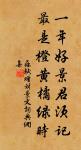 一年好景君須記
最是橙黃橘綠時